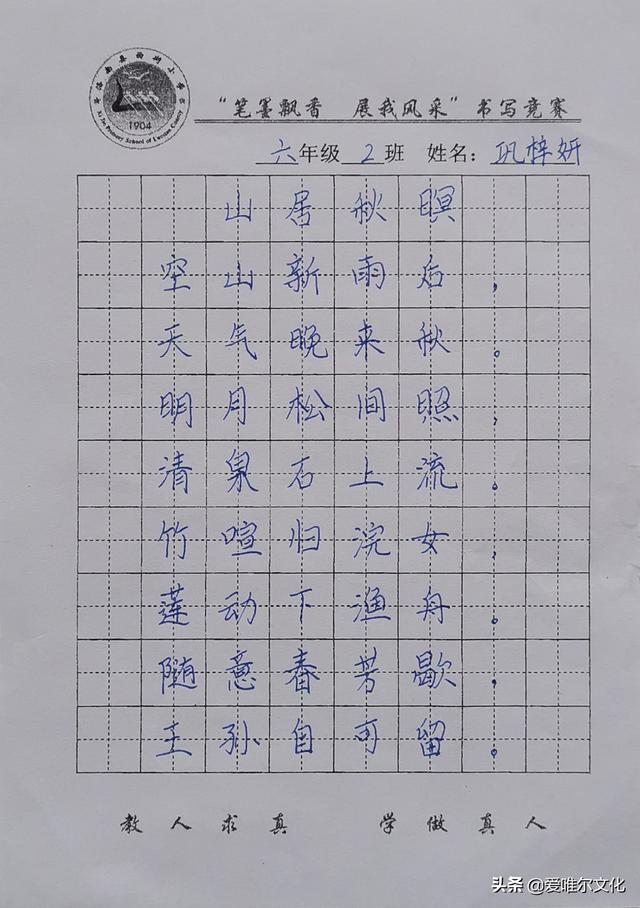 1904
“笔墨飘香 展我风采”书写竞赛
六年级2班 姓名：巩梓妍
山居秋暝
空山新雨后，
天气晚来秋。
明月松间照，
清泉石上流。
竹喧归浣女，
莲动下渔舟。
随意春芳歇，
王孙自可留。
教人求真 学做真人
头条 @爱唯尔文化